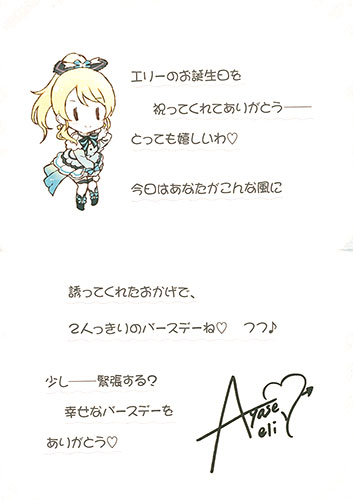 エリーのお誕生日を
祝ってくれてありがとう――
とっても嬉しいわ♡
今日はあなたがこんな風に
誘ってくれたおかげで、
2人っきりのバースデーね♡ フフ♪
少し――緊張する?
幸せなバースデーを
ありがとう♡
Ayase
eli